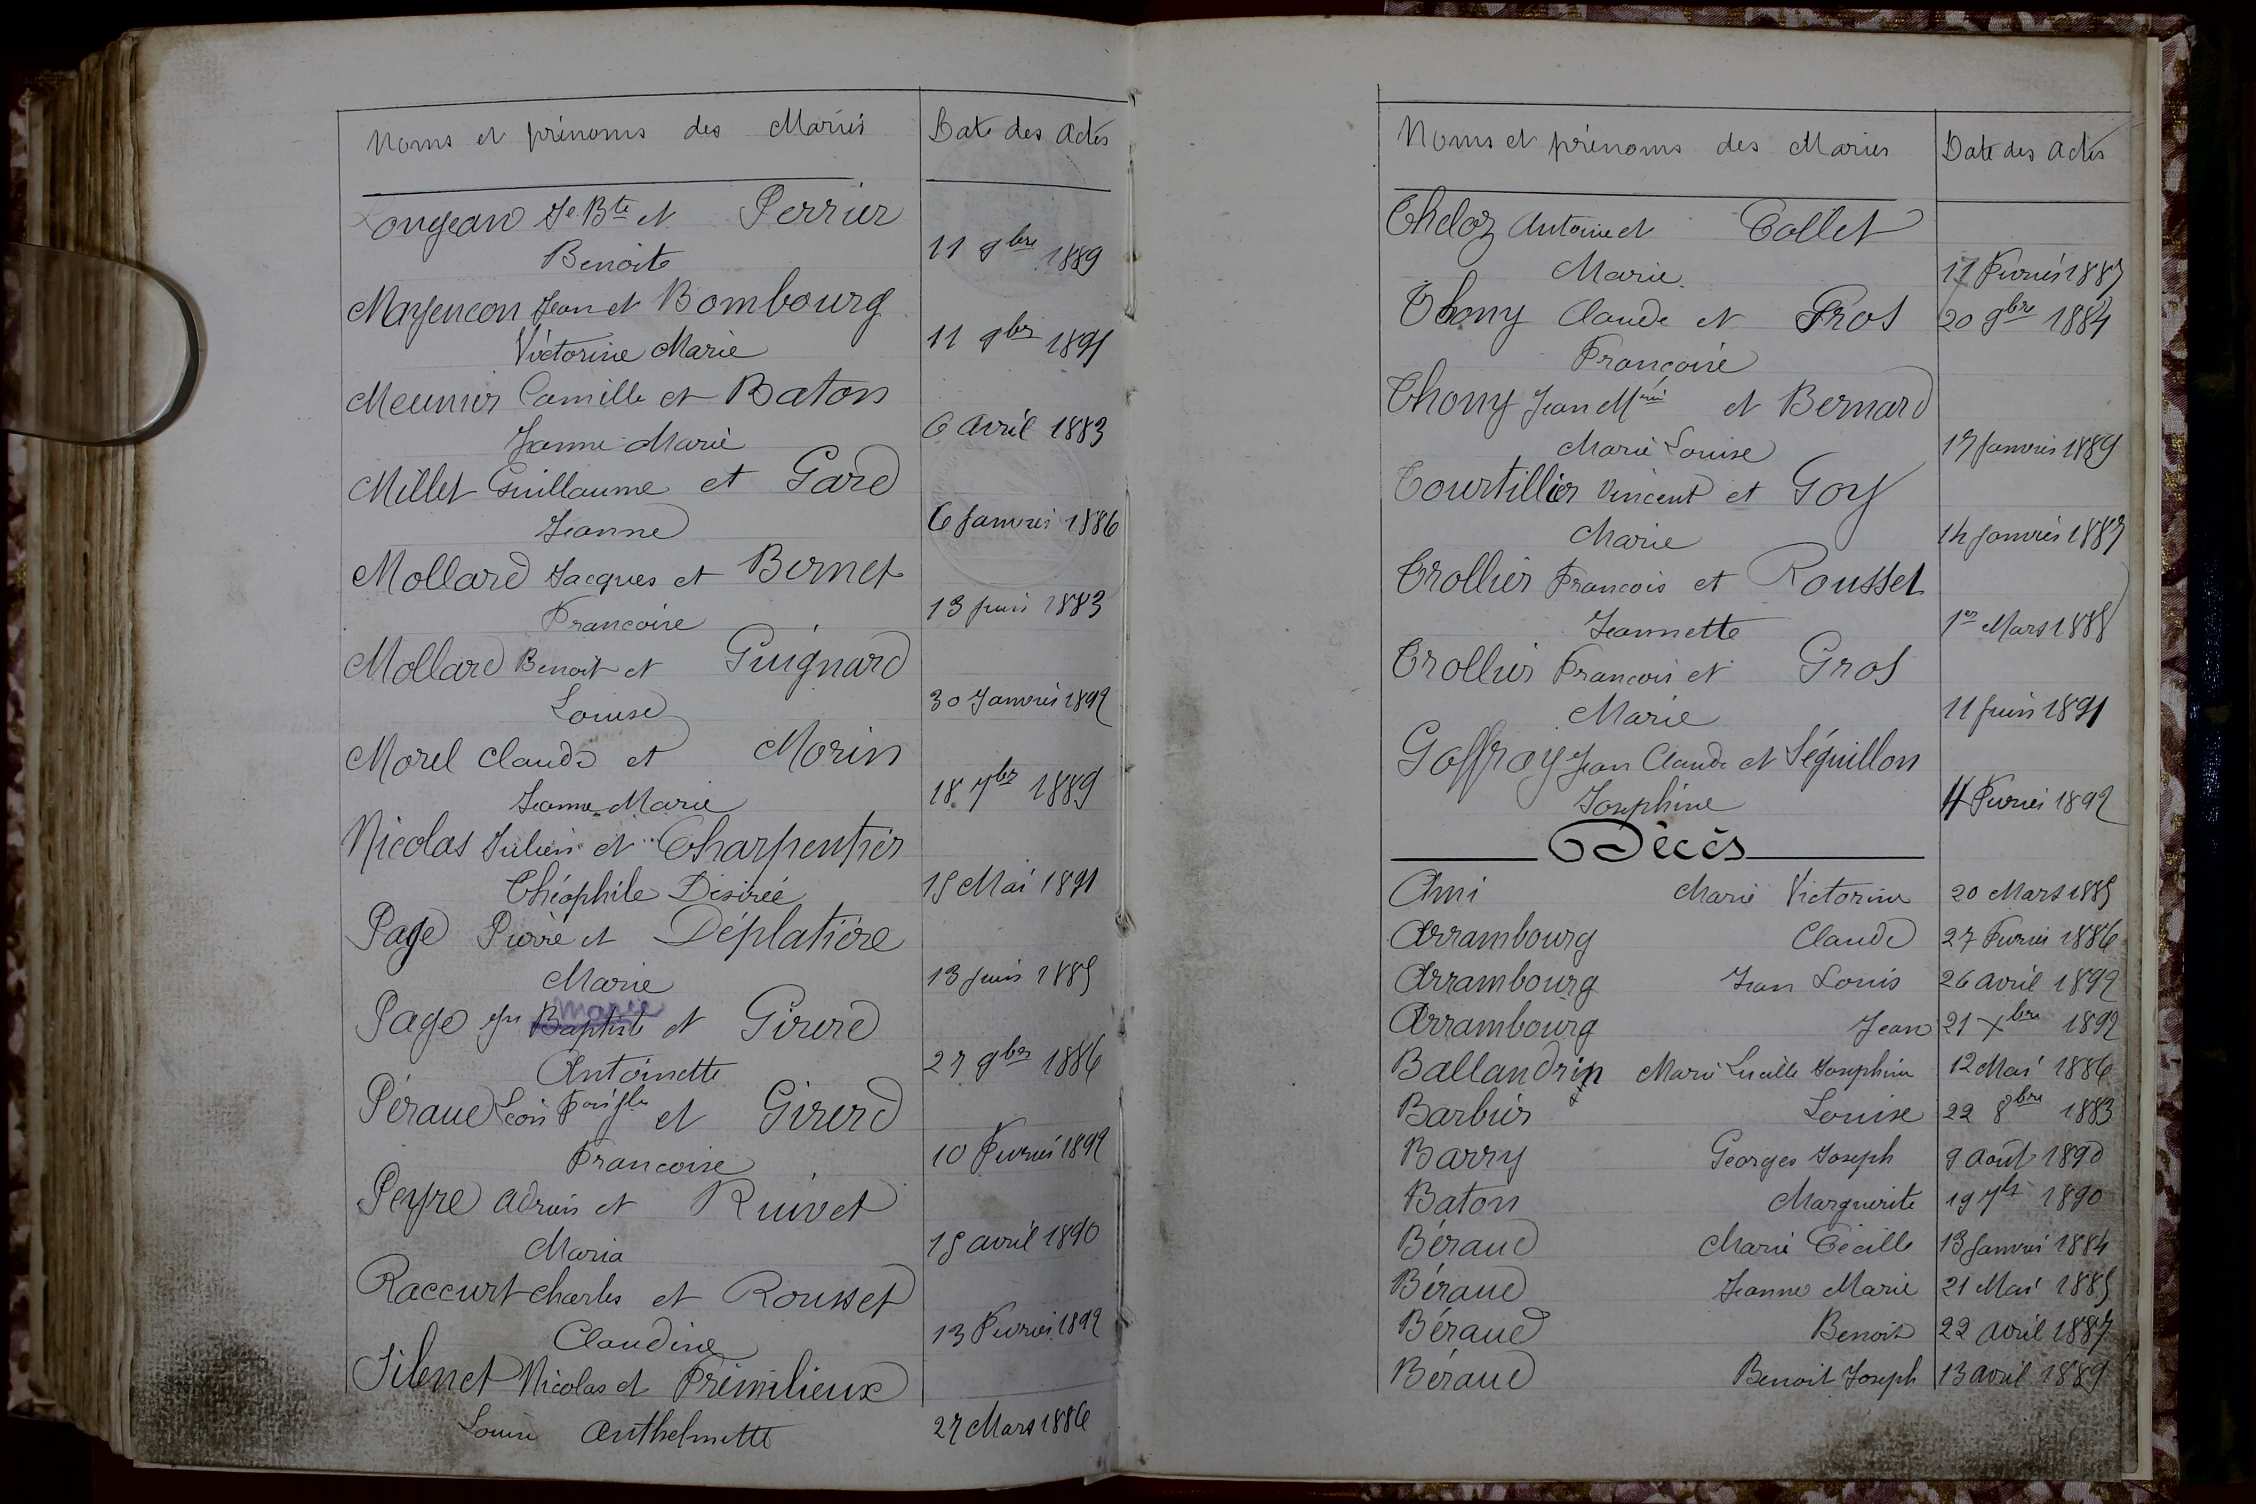 Noms et prénoms des Mariés Date des actes
Longeau Je Bte et Perrier
Benoite 11 9bre 1889
Mayencon Jean et Bombourg
Victorine Marie 11 9bre 1891
Meunier Camille et Baton
Jeanne Marie 6 avril 1883
Millet Guillaume et Gard
Jeanne 6 Janvier 1886
Mollard Jacques et Bernet
Francoise 13 Juin 1883
Mollard Benoit et Guignard
Louise 30 Janvier 1892
Morel Claude et Morin
Jeanne Marie 18 7bre 1889
Nicolas Julien et Charpentier
Théophile Désirée 15 Mai 1891
Page Pierre et Déplatière
Marie 13 Juin 1885
Marie
Page Baptiste et Girerd
Antoinette 27 9bre 1886
Péraud Léon et Girerd
Francoise 10 Février 1892
Peyre Adrien et Ruivet
Maria 15 avril 1890
Raccurt Charles et Rousset
Claudine 13 Février 1892
Silenet Nicolas et Prémilieux
Louise Anthelmette 27 Mars 1886
Noms et prénoms des Mariés Date des actes
Cheloz Antoine et Collet
Marie 11 Février 1887
Thony Claude et Gros 20 9bre 1884
Francoise
Thony Jean et Bernard
Marie Louise 17 Janvier 1889
Tourtillier Vincent et Goy
Marie 14 Janvier 1887
Trollier Francois et Rousset
Jeannette 1er Mars 1888
Trollier Francois et Gros
Marie 11 Juin 1891
Goffroy Jean Claude et Séguillon
Josephine 4 Février 1892
Décès
Ami Marie Victorine 20 Mars 1885
Arrambourg Claude 27 Février 1886
Arrambourg Jean Louis 26 avril 1892
Arrambourg Jean 21 Xbre 1892
Ballandrin Marie Lucille Josephine 12 Mai 1886
Barbier Louise 22 8bre 1883
Barry Georges Joseph 9 août 1890
Baton Marguerite 19 7bre 1890
Béraud Marie Cécille 13 Janvier 1884
Béraud Jeanne Marie 21 Mai 1885
Béraud Benoit 22 avril 1887
Béraud Benoit Joseph 13 avril 1889